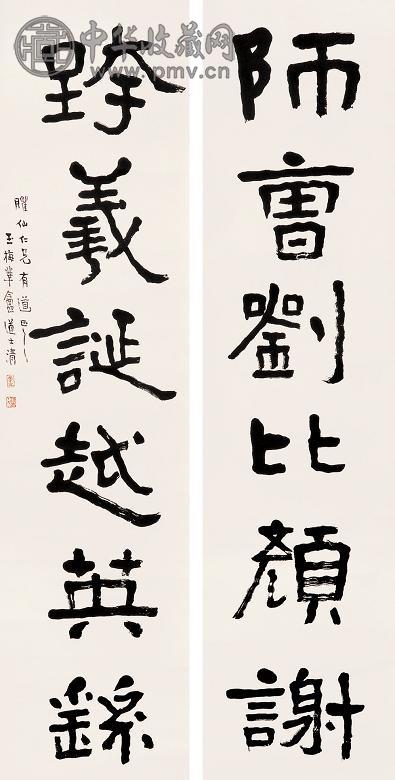 中华收藏网
www.pmv.cn
師曹劉比顏謝
跨羲誕越英繇
臞仙仁兄有道正之
玉梅華盦道士清